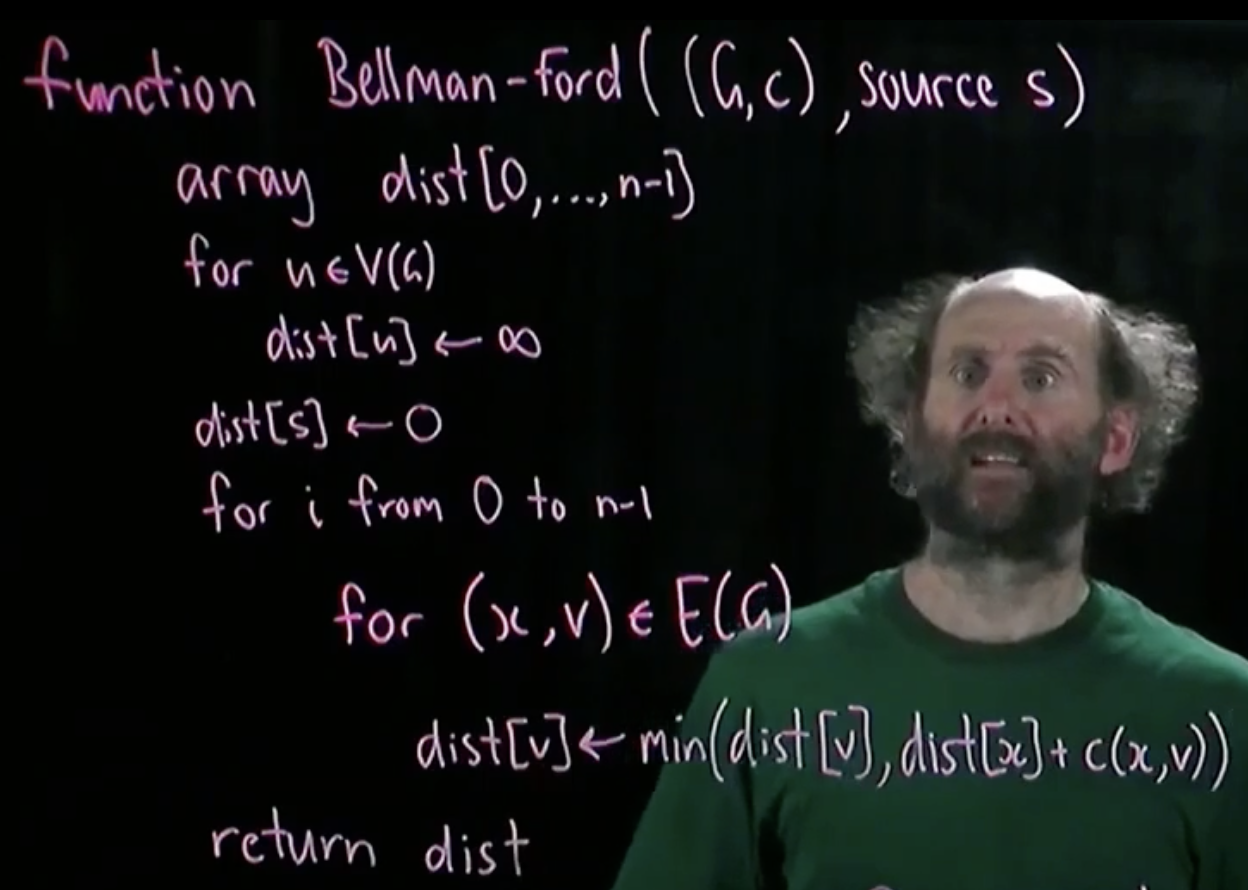 function Bellman-Ford((G,c),source s)
array dist[0,...,n-1]
for u∈V(G)
dist[u]←∞
dist[s]←0
for i from 0 to n-1
for (x,v)∈E(G)
dist[v]←min(dist[v],dist[x]+c(x,v))
return dist